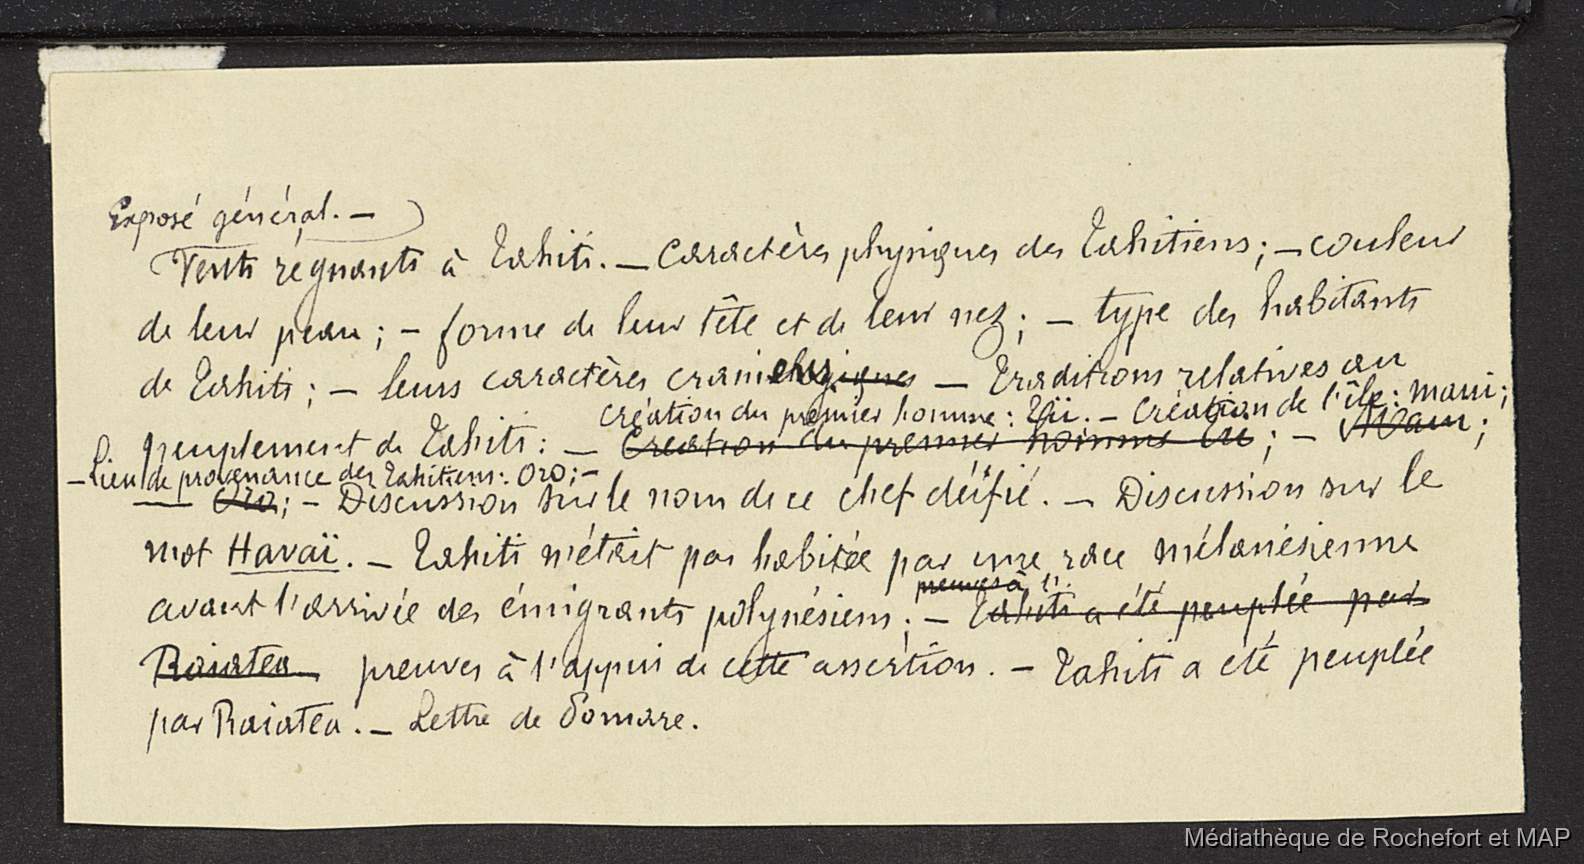 Exposé général. —
Vents régnants à Tahiti. — Caractères physiques des Tahitiens; — couleur
de leur peau; — forme de leur tête et de leur nez; — type des habitants
de Tahiti; — leurs caractères craniologiques — Traditions relatives au
création du premier homme: Tii. — Création de l'île: Maui;
peuplement de Tahiti: — Création du premier homme Tii; — Maui;
— lieu de provenance des Tahitiens: Oro; —
— Oro; — Discussion sur le nom de ce chef déifié. — Discussion sur le
mot Havaï. — Tahiti n'était pas habitée par une race mélanésienne
preuves à l'
avant l'arrivée des émigrants polynésiens; — Tahiti a été peuplée par
Raiatea preuves à l'appui de cette assertion. — Tahiti a été peuplée
par Raiatea. — Lettre de Pomare.
Médiathèque de Rochefort et MAP